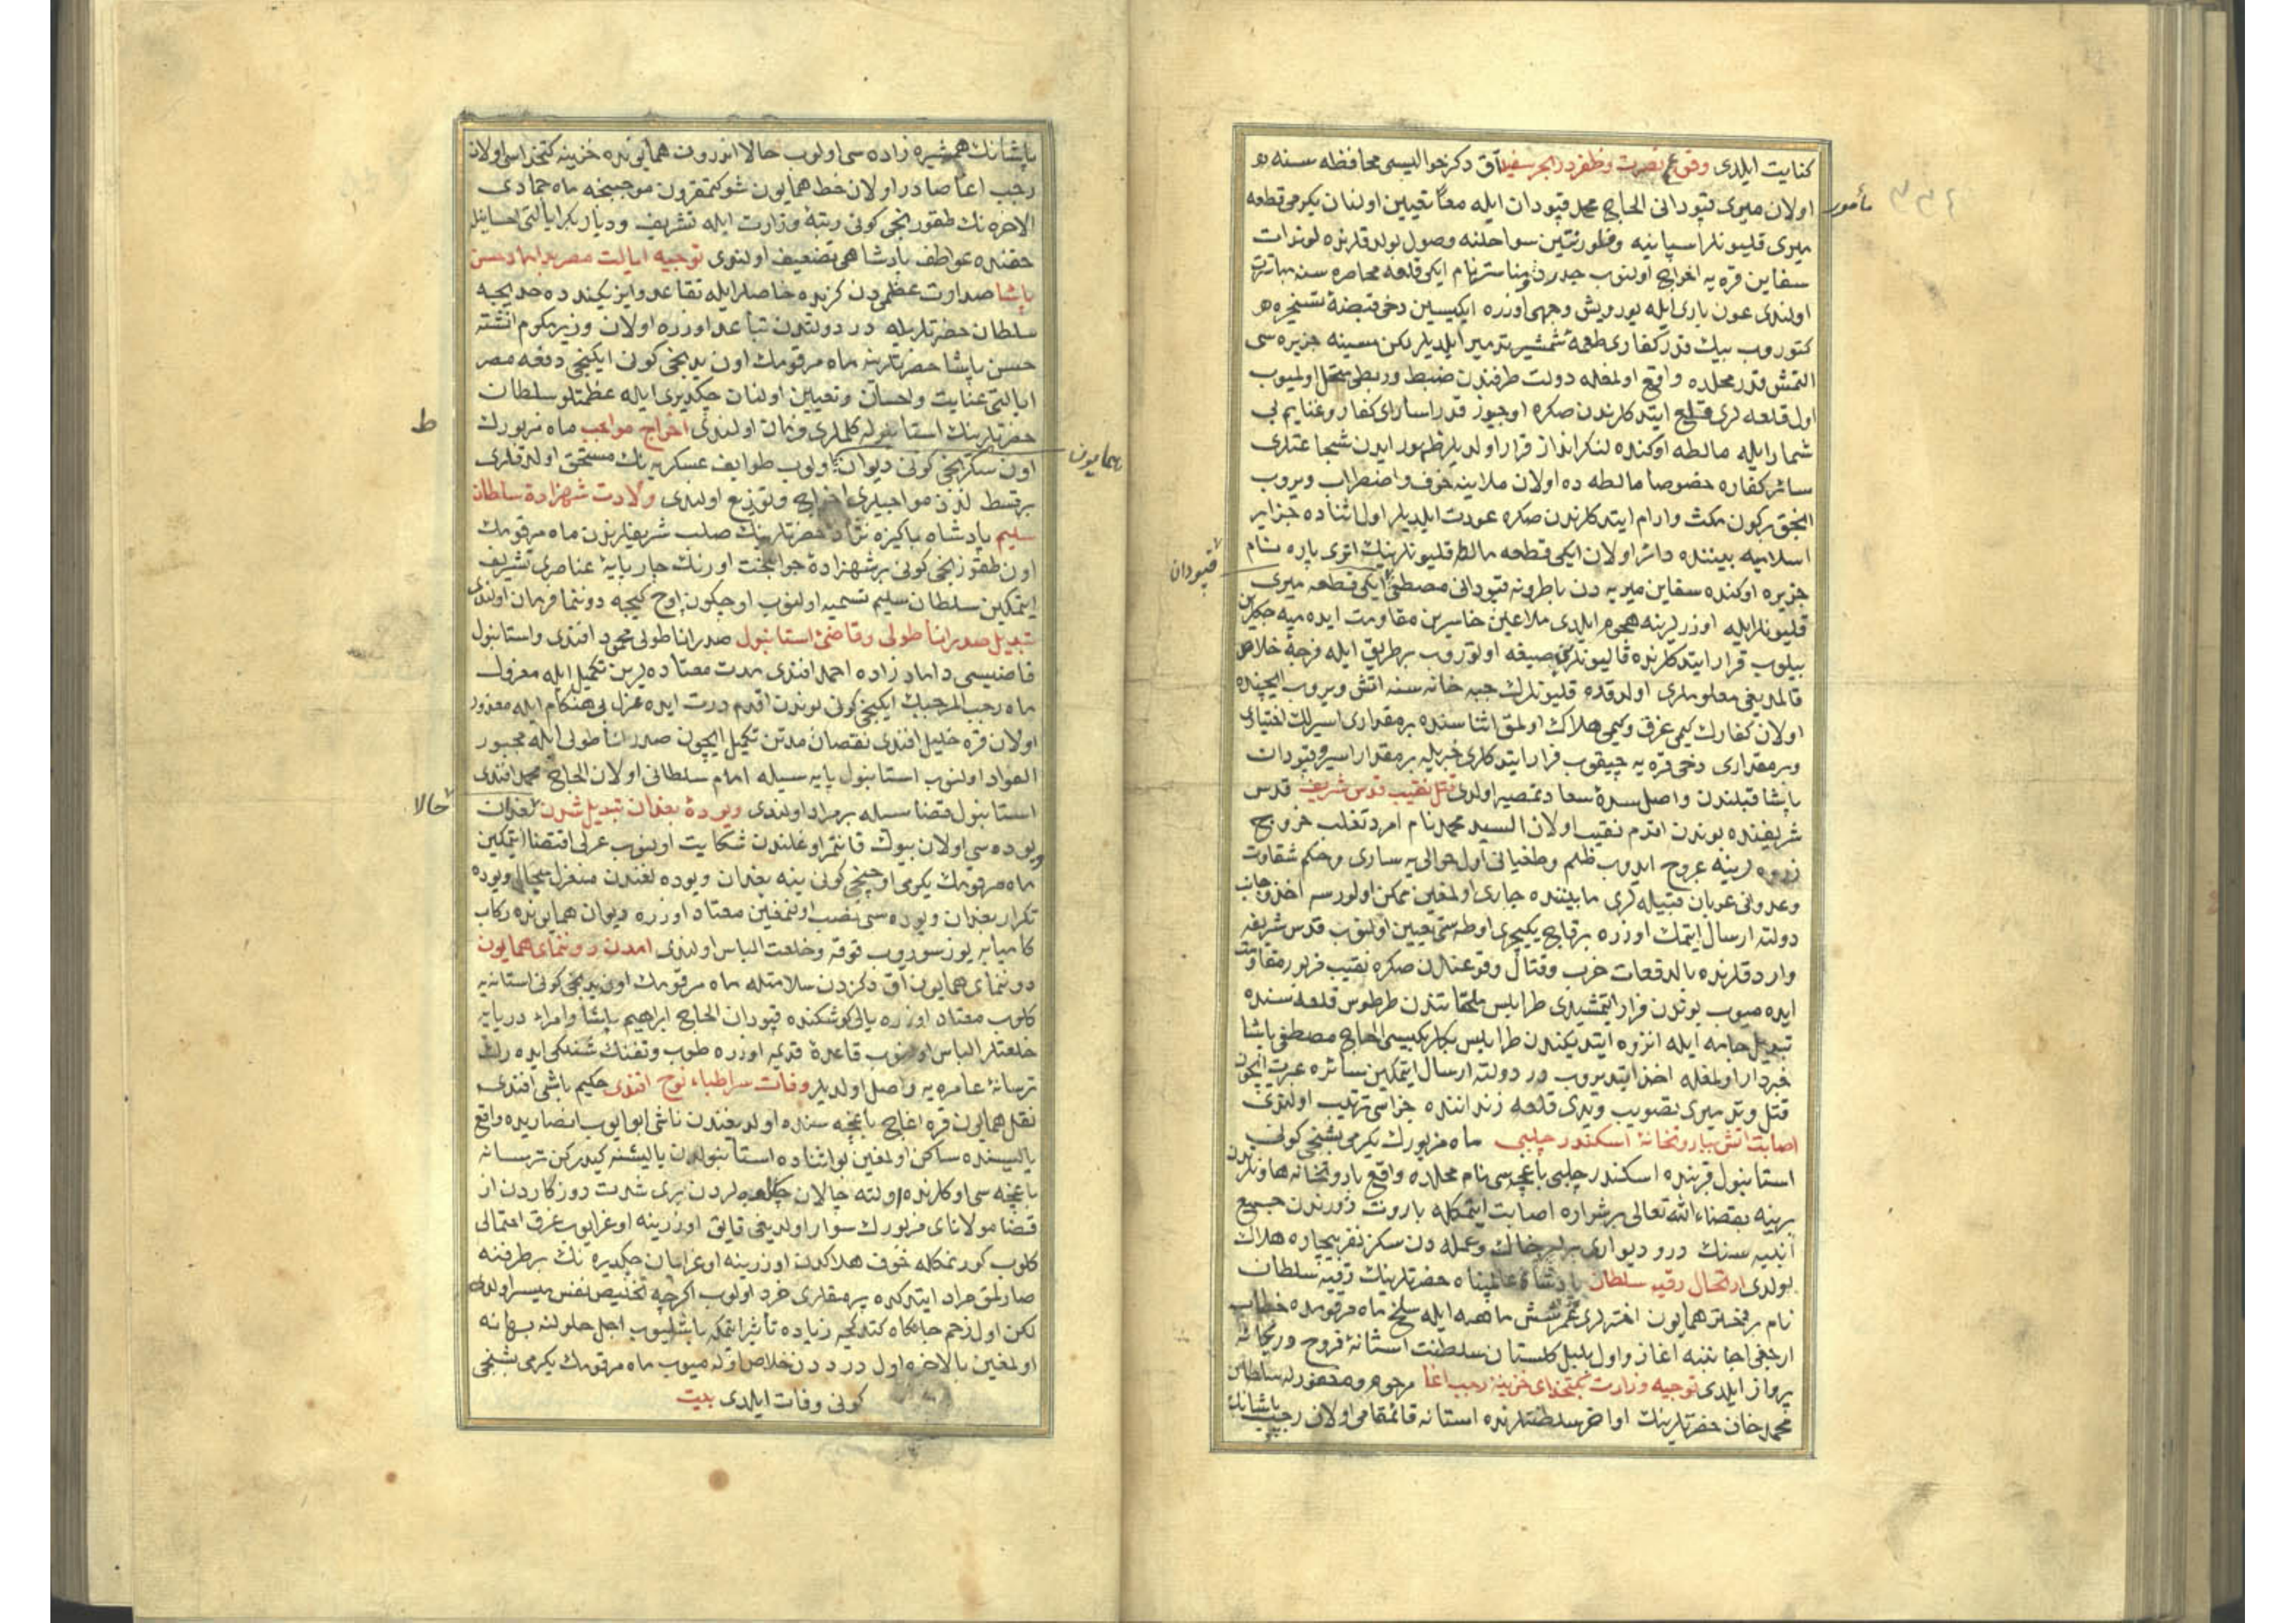 كفايت ايلدى وقوع نصرت وظفر در بحر سفيد آق دكز حواليسى محافظه سنه
مأمور
اولان ميرى قپودانى الحاج محمد قپودان ايله معًا تعيين اولنان يكرمى قطعه
ميرى قليونلر اسپانيه وفلورنتين سواحلنه وصول بولدقلرنده لوندات
سفاين قره يه اخراج اولنوب ومناستر نام ايكى قلعه محاصره سنه مباشرت
اولندى عون بارى ايله يورويش وجهى اوزره ايكيسين دخى قبضهٔ تسخيره
كتوروب بيك قدر كفارى طعمهٔ شمشير تدمير ايلديلر لكن مسينه جزيره سى
التمش قدر محلده واقع اولمغله دولت طرفندن ضبط وربطى متحمل اولميوب
اول قلعه لرى قلع ايتدكلرندن صكره اوچيوز قدر اساراى كفار وغنايم بى
شمار ايله مالطه اوكنده لنكر انداز قرار اولديلر ظهور ايدن شجاعتلرى
سائر كفاره خصوصا مالطه ده اولان ملاعينه خوف واضطراب ويروب
انجق بركون مكث وارام ايتدكلرندن صكره عودت ايلديلر اول اثناده جزاير
اسلاميه بيننده دائر اولان ايكى قطعه مالطه قليونلرينك اترى پاره نام
قپودان
جزيره اوكنده سفاين ميريه دن باطرونه قپودانى مصطفى ايكى قطعه ميرى
قليونلر ايله اوزرلرينه هجوم ايلدى ملاعين خاسرين مقاومت ايده ميه جكلرين
بيلوب قرار ايتدكلرنده قاليونلرين صيغه اوتوروب برطريق ايله فرجهٔ خلاص
قالمديغى معلوملرى اولدقده قليونلرك جبه خانه سنه اتش ويروب ايچنده
اولان كفارك كيمى غرق وكيمى هلاك اولمق اثناسنده برمقدارى اسيرلك اختيارى
وبرمقدارى دخى قره يه چيقوب فرار ايتدكلرى خبريله برمقدار اسير وقپودان
پاشا قبلندن واصل سدهٔ سعادتمصير اولدى قتل نقيب قدس شريف قدس
شريفنده بوندن اقدم نقيب اولان السيد محمد نام امرد تغلب خروج
زروه لرينه عروج ايدوب ظلم وطغيانى اول حوالى يه سارى وحكم شقاوت
وعدوانى عربان قبيله لرى مابيننده جارى اولمغين ممكن اولورسه اخذ وجانب
دولته ارسال ايتمك اوزره برقاچ يكيچرى اوطه سى تعيين اولنوب قدس شريفه
وارد قلرنده بالدفعات حرب وقتال وقوعندن صكره نقيب مزبور مقاومت
ايده ميوب بوندن فرار ايتمشيدى طرابلس ملحقاتندن طرطوس قلعه سنده
تبديل جامه ايله انزوه ايتديكندن طرابلس بكلربكيسى الحاج مصطفى پاشا
خبردار اولمغله اخذ ايتديروب در دولته ارسال ايتمكين سائره عبرت ايچون
قتل وتدميرى تصويب ويدى قلعه زنداننده جزاسى ترتيب اولندى
اصابت اتش ببارودخانهٔ اسكندر چلبى ماه مزبورك يكرمى بشنجى كونى
استانبول قربنده اسكندر چلبى باغچه سى نام محلده واقع بارودخانه هاونلرندن
برينه بقضاء الله تعالى برشراره اصابت ايتمكله باروت زورندن جميع
ابنيه سنك درو ديوارى برابر خاك وعمله دن سكز نفر بيچاره هلاك
بولدى ارتحال رقيه سلطان پادشاه عالمپناه حضرتلرينك رقيه سلطان
نام برفخنلر همايون اختر لرى عمر شش ماهه ايله سلخ ماه مرقومده خطاب
ارجعى اجابتنه اغاز واول بلبل كلستان سلطنت استانهٔ فروح وريحانه
پرواز ايلدى توجيه وزارت بكتخداى خزينه رجب اغا مرحوم ومغفور له سلطان
محمد خان حضرتلرينك اواخر سلطنتلرنده استانه قائمقامى اولان رجب پاشانك
پاشانك همشيره زاده سى اولوب حالا اندرون همايونده خزينه كتخداسى اولان
رجب اغا صادر اولان خط همايون شوكتمقرون موجبنجه ماه جمادى
الاخره نك طقوزنجى كونى رتبهٔ وزارت ايله تشريف ودياربكر ايالتى احسانيله
حقنده عواطف پادشاهى تضعيف اولندى توجيه ايالت مصر بداماد حسن
پاشا صدارت عظمى دن كزيده خاصلر ايله تقاعد وازنيكمد ده خديجه
سلطان حضرتلريله در دولتدن تباعد اوزره اولان وزير مكرم انشته
حسن پاشا حضرتلرينه ماه مرقومك اون يدنجى كونى ايكينجى دفعه مصر
ايالتى عنايت واحسان وتعيين اولنان چكديرى ايله عظمتلو سلطان
حضرتلرينك استانبوله كلملرى فرمان اولندى اخراج مواجب ماه مزبورك
ط
همايون
اون سكزنجى كونى ديوان اولوب طوايف عسكريه نك مستحق اولدقلرى
برقسط لذذ مواجبلرى اخراج وتوزيع اولندى ولادت شهزادهٔ سلطان
سليم پادشاه پاكيزه نژاد حضرتلرينك صلب شريفلرندن ماه مرقومك
اون طقوزنجى كونى برشهزادهٔ جوانبخت اورنك چار پايهٔ عناصرى تشريف
ايتمكين سلطان سليم تسميه اولنوب اوچكون اوچ كيجه دوننما فرمان اولندى
تبديل صدر اناطولى وقاضئ استانبول صدر اناطولى محمود افندى واستانبول
قاضيسى داماد زاده احمد افندى مدت معتاده لرين تكميل ايله معزول
ماه رجب المرجبك ايكنجى كونى بوندن اقدم درت ايده عزل بى هنكام ايله مغدور
اولان قره خليل افندى نقصان مدتن تكميل ايچون صدر اناطولى ايله مجبور
الفواد اولنوب استانبول پايه سيله امام سلطانى اولان الحاج محمد افندى
حالا
استانبول قضاسيله برمراد اولندى ويودهٔ بغدان تبديل شدن بغدان
ويوده سى اولان بيوك قانتمر اوغلندن شكايت اولنوب عزلى اقتضا ايتمكين
ماه مرقومك يكرمى اوچنجى كونى ينه بغدان ويوده لغندن منفصل ميخال ويوده
تكرار بغدان ويوده سى نصب اولنمغين معتاد اوزره ديوان همايونده ركاب
كاميابه يوز سوروب قوقه وخلعت الباس اولندى آمدن دوننماى همايون
دوننماى همايون آق دكزدن سلامتله ماه مرقومك اون يدنجى كونى استانه يه
كلوب معتاد اوزره يالى كوشكنده قپودان الحاج ابراهيم پاشا وامراء درياىه
خلعتلر الباس اولنوب قاعدهٔ قديمه اوزره طوب وتفنك شنلكى ايده رك
ترسانهٔ عامره يه واصل اولديلر وفات سر اطباء نوح افندى حكيم باشى افندى
نقل همايون قره اغاچ باغچه سنده اولديغندن ناشى ابو ايوب انصاريده واقع
ياليسنده ساكن اولمغين بواثناده استانبولدن ياليسنه كيدركن ترسانه
باغچه سى اوكلرنده اولته چالان لردن برى شدت روزكاردن از
قضا مولاناى مزبورك سوار اولديغى قايق اوزرينه اوغرايوب غرق احتمالى
كلوب كورنمكله خوف هلاكدن اوزرينه اوغرايان چكديره نك برطرفنه
صارلمق مراد ايتدكده برمقدارى خرد اولوب اكرچه تخليص نفس ميسر اولدى
لكن اول زخم جانكاه كتدكجه زياده تأثير ايتمكه باشليوب اجل حلولنه بهانه
اولمغين بالاخره اول دردن خلاص اوله ميوب ماه مرقومك يكرمى بشنجى
كونى وفات ايلدى بيت